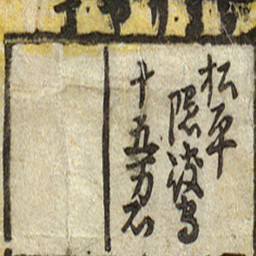 松平
隠岐守
十五万石